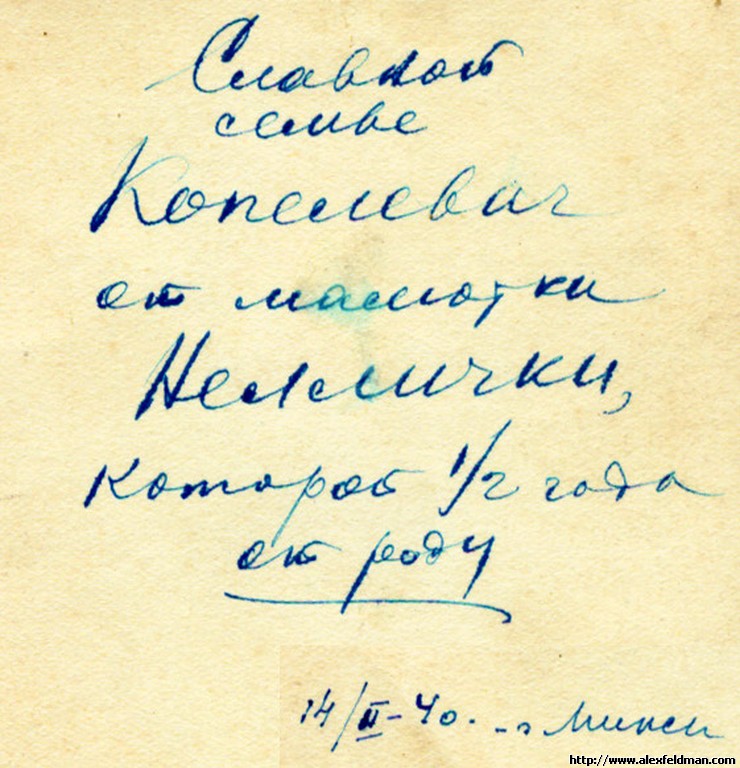 Славной
семье
Копелевич
от малютки
Неллички,
которой 1/2 года
от роду
14/II-40. г. Минск
http://www.alexfeldman.com